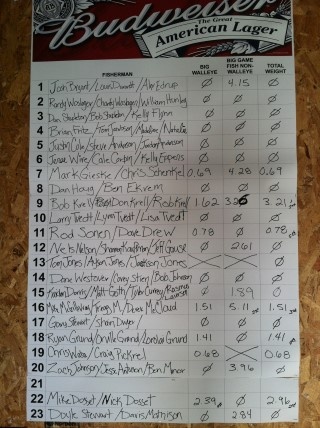 Budweiser
The Great
American Lager
FISHERMAN BIG WALLEYE BIG GAME FISH NON-WALLEYE TOTAL WEIGHT
1 Josh Bryant / Louis / Alex Edrup Ø 4.15 Ø
2 Randy / Charity / William Hunley Ø Ø Ø
3 Dan Stapleton / Bob Stapleton / Kelly Flynn Ø Ø Ø
4 Brian Fritz / Tom Jawson / Madeline / Natalie Ø Ø Ø
5 Justin Cole / Steve Anderson / Jordan Anderson Ø Ø Ø
6 Jesse Wire / Cole Carlson / Kelly Ø Ø Ø
7 Mark Gieske / Chris Schenkel 0.69 4.28 0.69
8 Dan Haug / Ben Ekrem Ø Ø Ø
9 Bob Krell / Don Krell / Rob Krell 1.62 3.26 3.21
10 Larry Tvedt / Lynn Tvedt / Lisa Tvedt Ø Ø Ø
11 Rod Sonen / Dave Drew 0.78 Ø 0.78
12 Nels Nelson / Shannon / Jeff Gause Ø 2.61 Ø
13 Tom Jones / Jones / Jackson Jones
14 Dane Westover / Corey Stien / Bob Johnson Ø Ø Ø
15 Kordan Davis / Matt Goth / Tyler Currey / Ø 1.89 Ø
16 Max / Terry M. / Derek McCloud 1.51 5.11 1.51
17 Gary Stewart / Shawn Dwyer Ø Ø Ø
18 Ryan Grund / Orville Grund / Jordan Grund 1.41 Ø 1.41
19 Chris Wabs / Craig Pickrel 0.68 0.68
20 Zach Johnson / Jesse Anderson / Ben Minor Ø 3.96 Ø
21
22 Mike Dosset / Nick Dosset 2.39 Ø 2.96
23 Doyle Stewart / Davis Mattison Ø 2.84 Ø